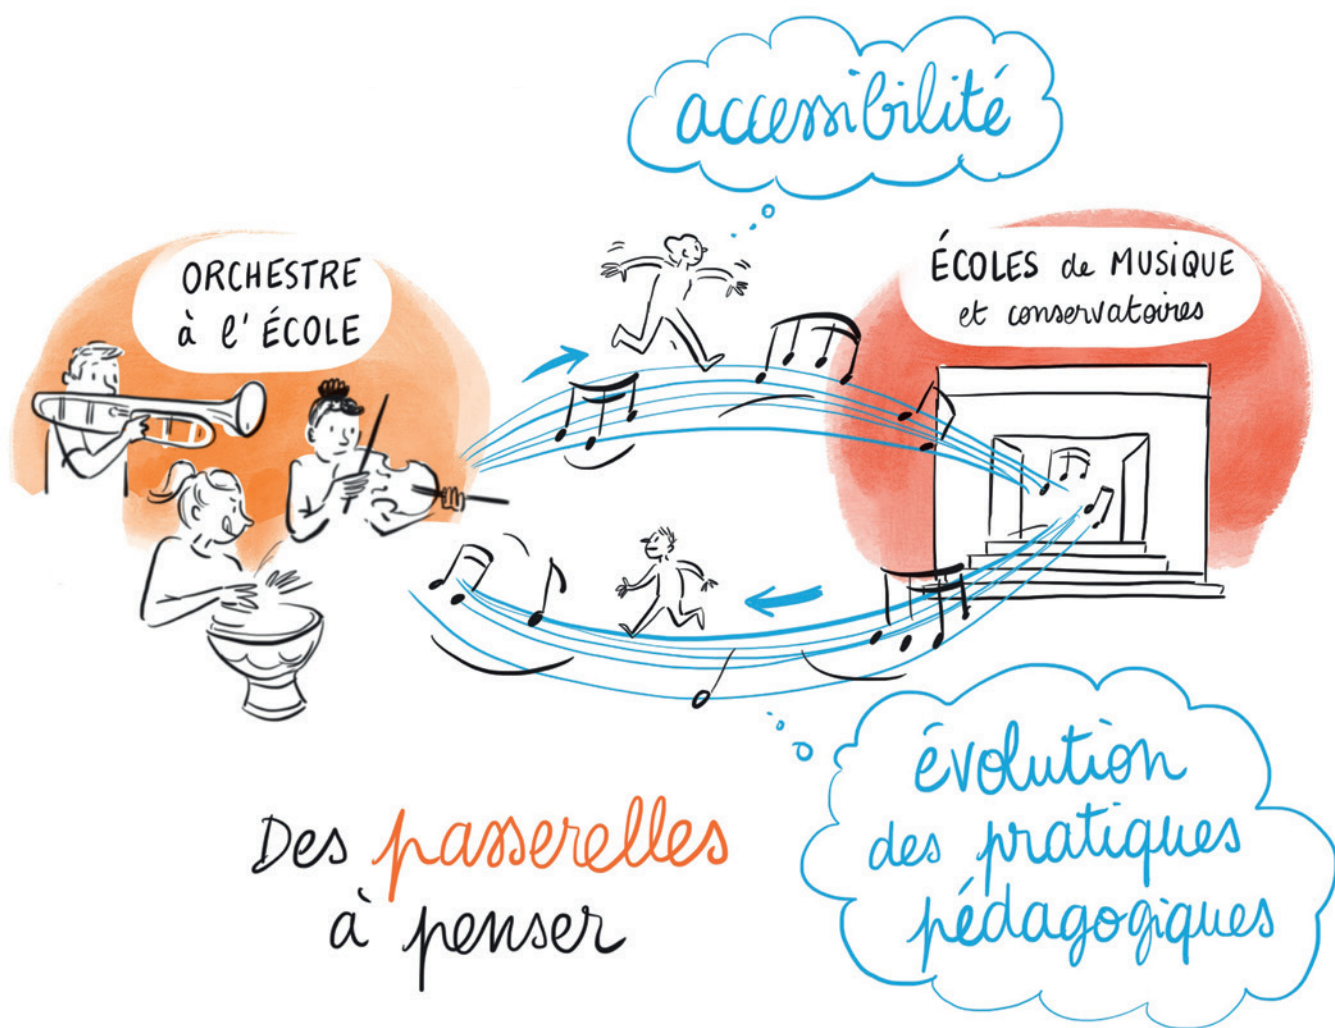 accessibilité
ORCHESTRE
à l'ÉCOLE
ÉCOLES de MUSIQUE
et conservatoires
Des passerelles
à penser
évolution
des pratiques
pédagogiques